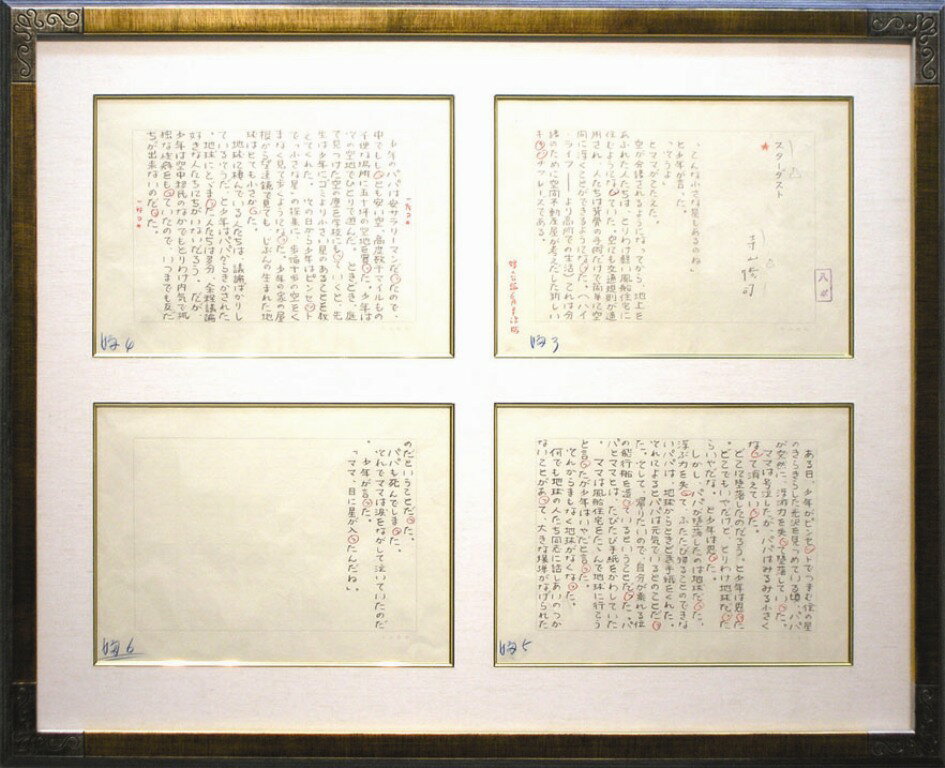 スターダスト
寺山修司
「こんな小さな星もあるのね」
と少年が言った。
「そうよ」
とママがこたえた。
空が分譲されるようになってから、地上を
あふれた人たちは、とりわけ軽い風船住宅に
住むようになっていた。空にも交通規則が適
用され、人たちは背骨の手術だけで簡単に空
間に浮くことができるようになった。〈ハイ
・ライフ —— より高所での生活〉これは分
譲のために空間不動産屋が考えだした新しい
キャッチフレーズである。
3
少年のパパは安サラリーマンだったので、
中でももっとも安い空、高度数千マイルもの
不便な場所に五十坪の空地を買った。少年は
その空地でひとりで遊んだ。ときどき、庭
で見つけた空の塵を学校にもって行くと、先
生は少年にゴミより小さい星のあることを教
えてくれた。その日から少年はピンセット
で、小さな星の採集に、歩幅十歩の空をく
まなく見て歩くようになった。少年の家の屋
根から望遠鏡で見ても、じぶんの生まれた地
球はとても小さかった。
地球に棲んでいる人たちは、議論ばかりし
ているそうだ、と少年はパパからきかされた
。地球にとどまった人たちは多分、余程議論
好きな人たちにちがいないだろう。だが、
少年は空中移民のなかでもとりわけ内気で孤
独な性癖をもっていたので、いつまでも友だ
ちが出来ないのだった。
4
ある日、少年がピンセットでつまむ位の星
のきらきらした光沢を見つめている頃、パパ
が突然に、浮力を失って墜落していった。
ママは号泣したが、パパはみるみる小さく
なって消えていった。
どこに墜落したのだろう、と少年は思った
。どこでもいやだけど、とりわけ地球だった
らいやだな。と少年は思った。
しかし、パパが墜落したのは地球だった。
浮ぶ力を失って、ふたたび帰ることのできな
いパパは、地球からときどき手紙をくれた。
それによるとパパは元気でいるとのことだっ
た。そして、帰りたいので、自分が乗れる位
の飛行船を造っているということだった。パ
パとママとは、たびたび手紙をかわしていた
。ママは風船住宅をたゝんで地球に行こう
と言ったが少年はいやだと言った。
それからまもなく地球がなくなった。
何でも地球の人たち同志に話しあいのつか
ないことがあって、大きな爆弾がなげられた
5
のだということだった。
パパも死んでしまった。
それでママは涙をながして泣いていたのだ
。少年が言った。
「ママ、目に星が入ったんだね」
6